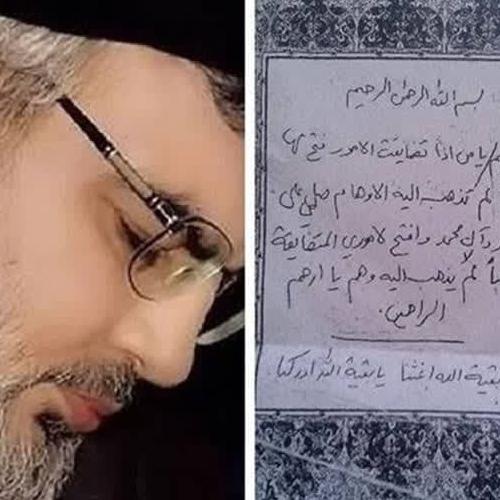 بسم الله الرحمن الرحيم
يا من اذا تضايقت الامور فتح لها
لم تذهب اليه الاوهام صلي على
وآل محمد وافتح لاموري المتضايقة
باباً لم يذهب اليه وهم يا ارحم
الراحمين.
بقية الله اغثنا يا بقية الله ادركنا